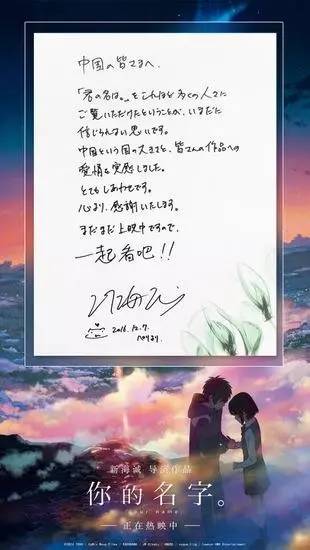 中国の皆さまへ.
「君の名は。」をこれほど多くの人々に
ご覧いただけたということが、いまだに
信じられない思いです。
中国という国の大きさと、皆さんの作品への
愛情を実感しました。
とてもしあわせです。
心より、感謝いたします。
まだまだ上映中ですので、
一起看吧!!
2016.12.7.
新海诚 导演作品
你的名字。
your name.
正在热映中